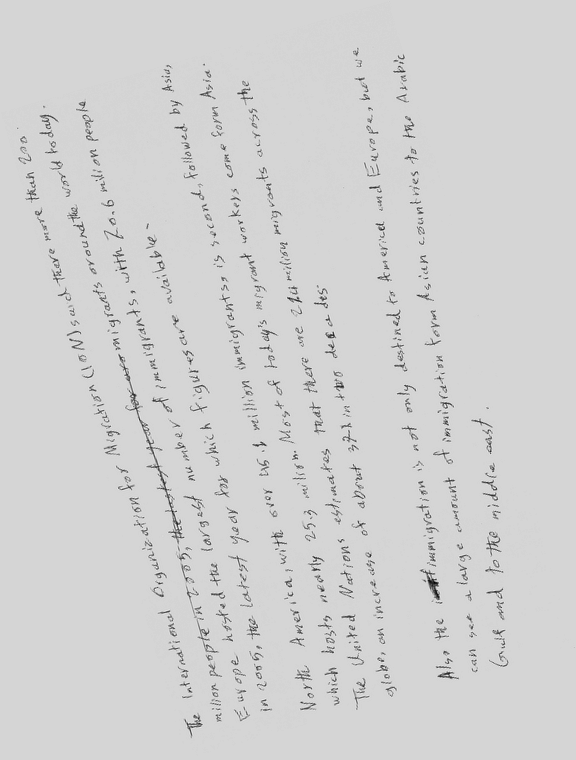 The International Organization for Migration (IOM) said there more than 200.
milion people in 2005, the lastest year for ura migrants around the world today.
Europe hosted the largest number of immigrants, with 70.6 milion people
in 2005, the latest year for which figures are available.
North America, with over 45.1 million immigrants, is second, followed by Asia,
which hosts nearly 25.3 milion. Most of today's migrant workers come form Asia.
The United Nations estimates that there are 214 milion migrants across the
globe, an increase of about 37% in two decades
Also the immigration is not only destined to America and Europe, but we
can see a large amount of immigration form Asian countries to the Arabic
Gulf and to the middle east.